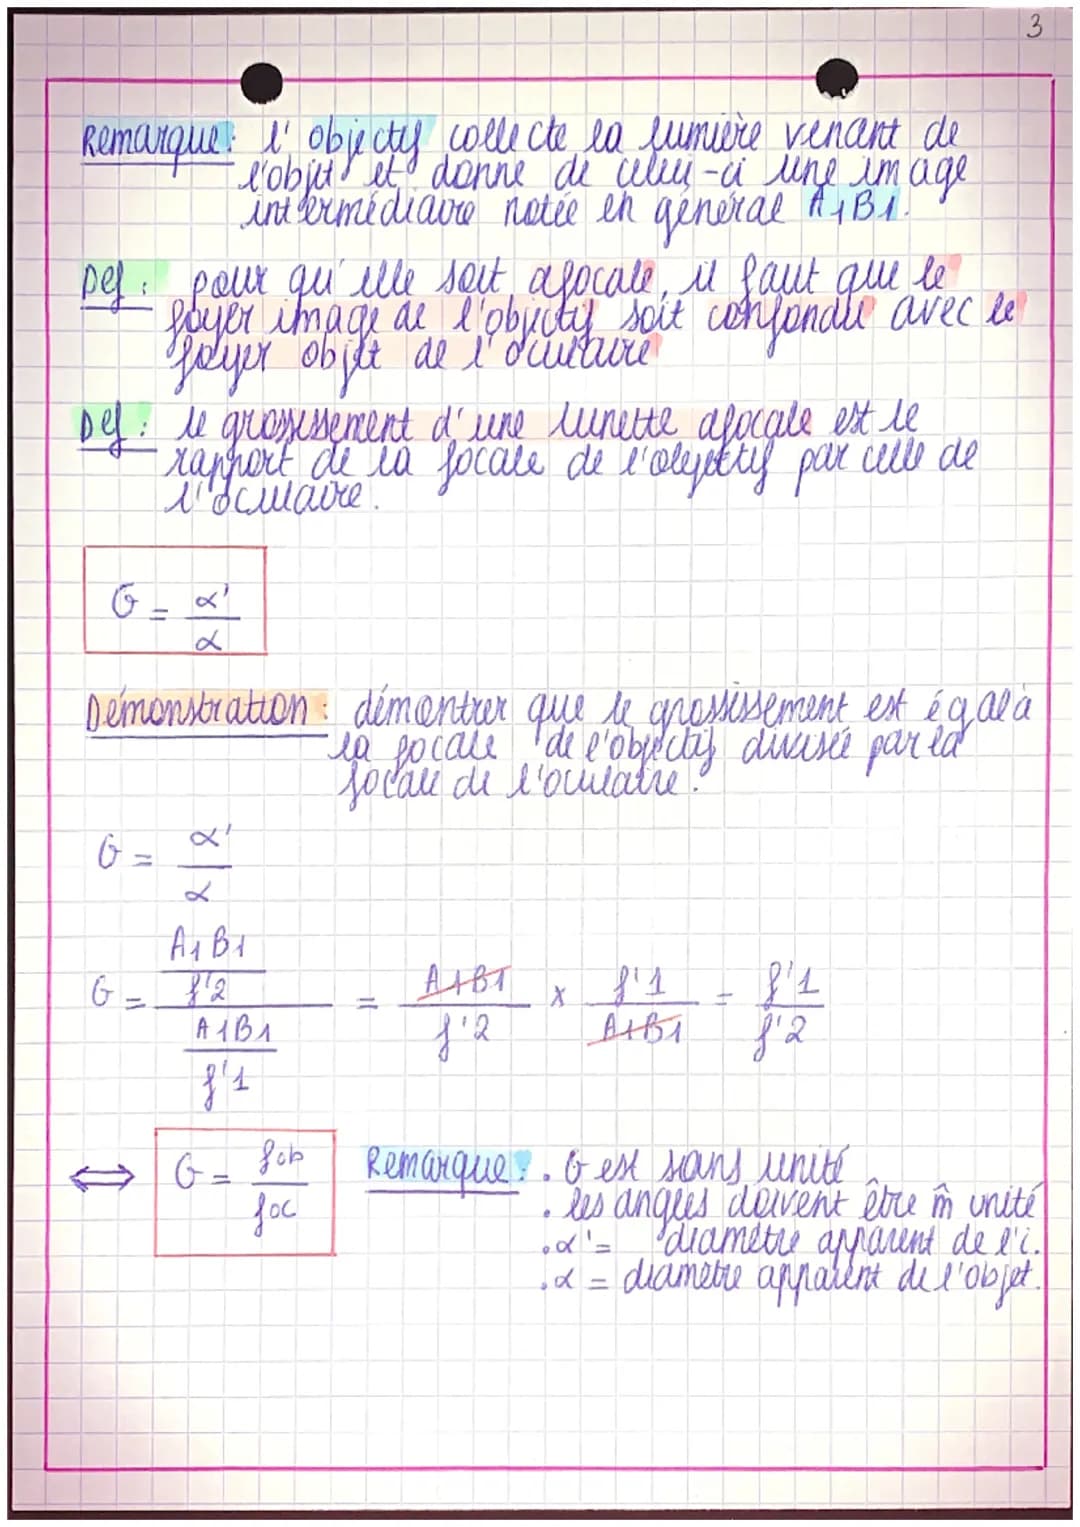 3
Remarque : l'objectif collecte la lumière venant de
l'objet et donne de celui-ci une image
intermédiaire notée en général A1B1.
Def : pour qu'elle soit afocale, il faut que le
foyer image de l'objectif soit confondu avec le
foyer objet de l'oculaire
Def : le grossissement d'une lunette afocale est le
rapport de la focale de l'objectif par celle de
l'oculaire.
G = α'/α
Démonstration : démontrer que le grossissement est égal à
la focale de l'objectif divisée par la
focale de l'oculaire.
G = α'/α
G = (A1B1/f'2)/(A1B1/f'1) = A1B1/f'2 × f'1/A1B1 = f'1/f'2
⇔ G = fob/foc
Remarque : . G est sans unité
. les angles doivent être m̂ unité
. α' = diamètre apparent de l'i.
. α = diametre apparent de l'objet.